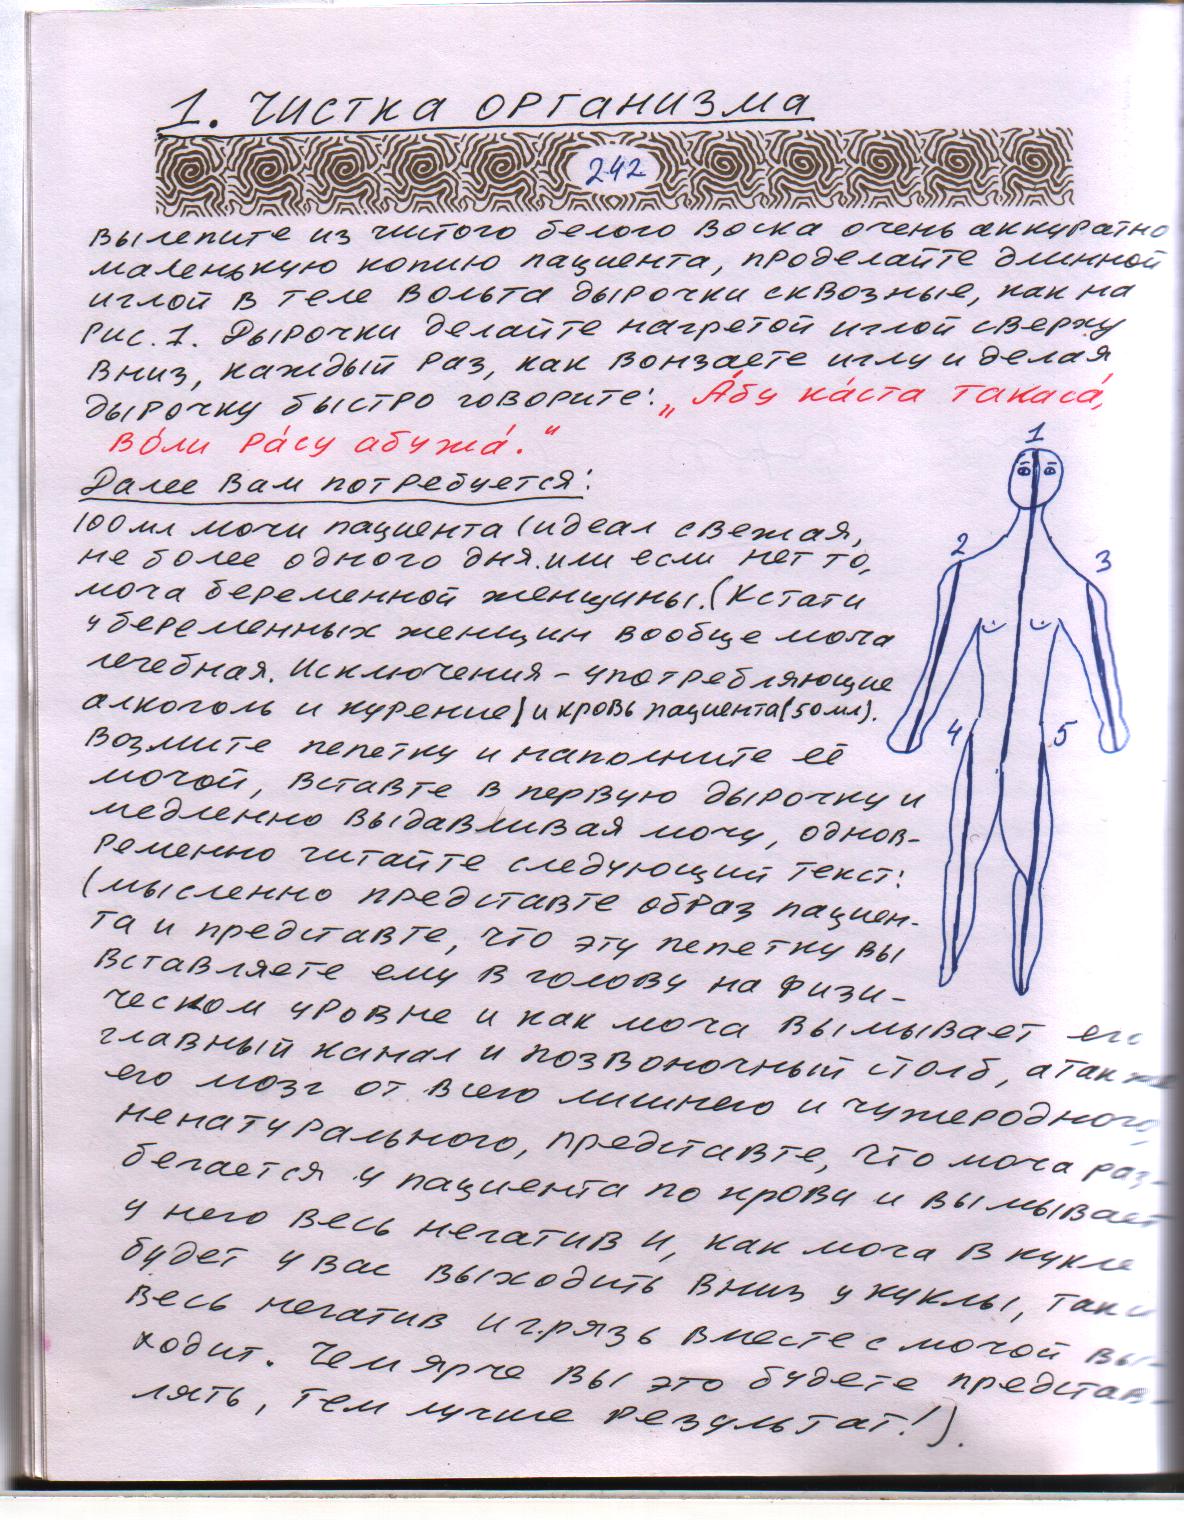 1. Чистка организма
242
Вылепите из чистого белого воска очень аккуратно
маленькую копию пациента, проделайте длинной
иглой в теле вольта дырочки сквозные, как на
рис. 1. Дырочки делайте нагретой иглой сверху
вниз, каждый раз, как вонзаете иглу и делая
дырочку быстро говорите: „Áбу кáста такасá,
вóли рáсу абужá."
Далее вам потребуется:
100мл мочи пациента (идеал свежая,
не более одного дня. или если нет то,
моча беременной женщины. (Кстати
у беременных женщин вообще моча
лечебная. Исключения - употребляющие
алкоголь и курение) и кровь пациента (50мл).
Возмите пепетку и наполните её
мочой, вставте в первую дырочку и
медленно выдавливая мочу, однов-
ременно читайте следующий текст:
(мысленно представте образ пациен-
та и представте, что эту пепетку вы
вставляете ему в голову на физи-
ческом уровне и как моча вымывает его
главный канал и позвоночный столб, а также
его мозг от всего лишнего и чужеродного,
ненатурального, представте, что моча раз-
бегается у пациента по крови и вымывает
у него весь негатив и, как моча в кукле
будет у вас выходить вниз у куклы, так и
весь негатив и грязь вместе с мочой вы-
ходит. Чем ярче вы это будете представ-
лять, тем лучше результат!).
1
2
3
4
5